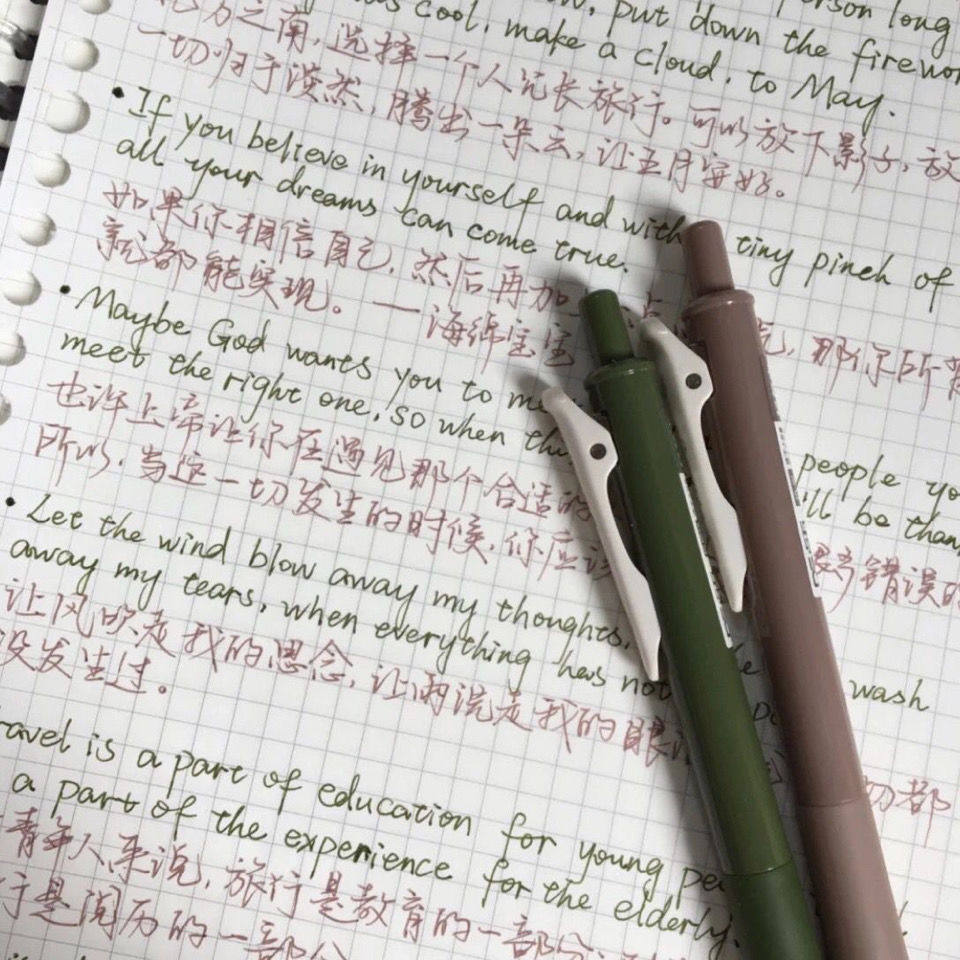 put down the firewor
cool, make a cloud, to May.
之南,选择一个人冗长旅行。可以放下影子,放
一切归于淡然,腾出一朵云,让五月安好。
• If you believe in yourself and with tiny pinch of
all your dreams can come true.
如果你相信自己,然后再加 那你所
都能实现。—海绵宝宝
• Maybe God wants you to me people yo
meet the right one, so when th 'll be than
也许上帝让你在遇见那个合适的 错误的
所以,当这一切发生的时候,你应该
• Let the wind blow away my thoughts, wash
away my tears, when everything has not
让风吹走我的思念,让雨洗走我的眼 都
没发生过。
ravel is a part of education for young pe
a part of the experience for the elderly.
青年人来说,旅行是教育的一部分;
行是阅历的一部分